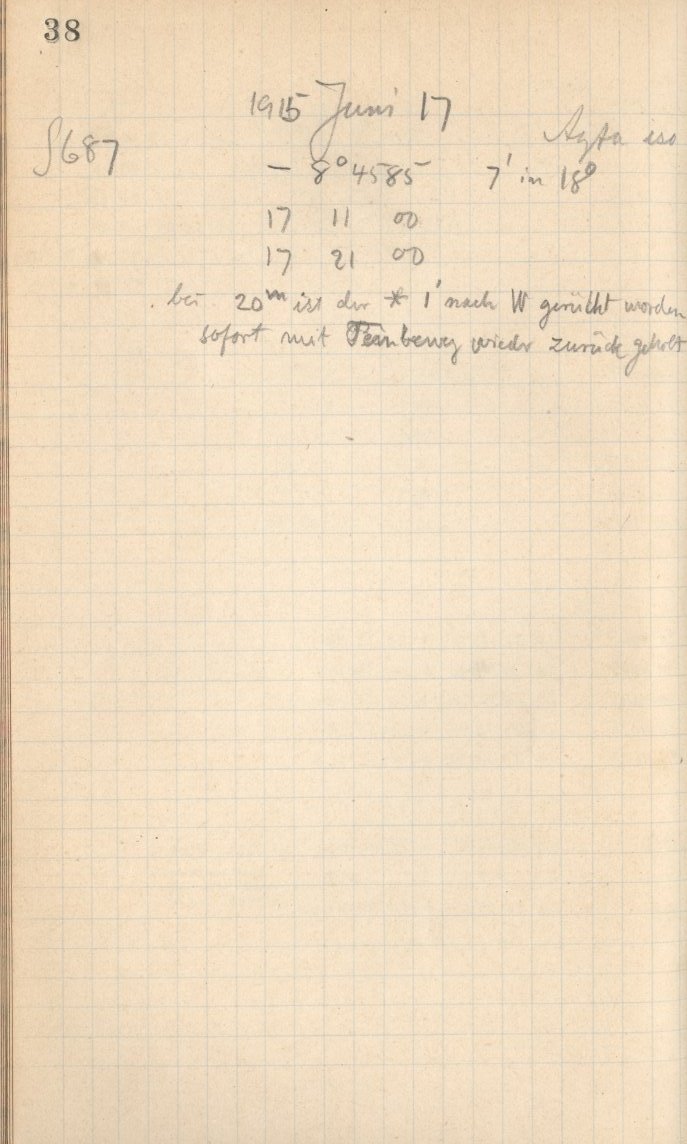 38
1915 Juni 17
Agfa iso
S687
- 8° 4585 7' in 18°
17 11 00
17 21 00
bei 20m ist der * 1' nach W gerückt worden
sofort mit Feinbeweg wieder zurück geholt